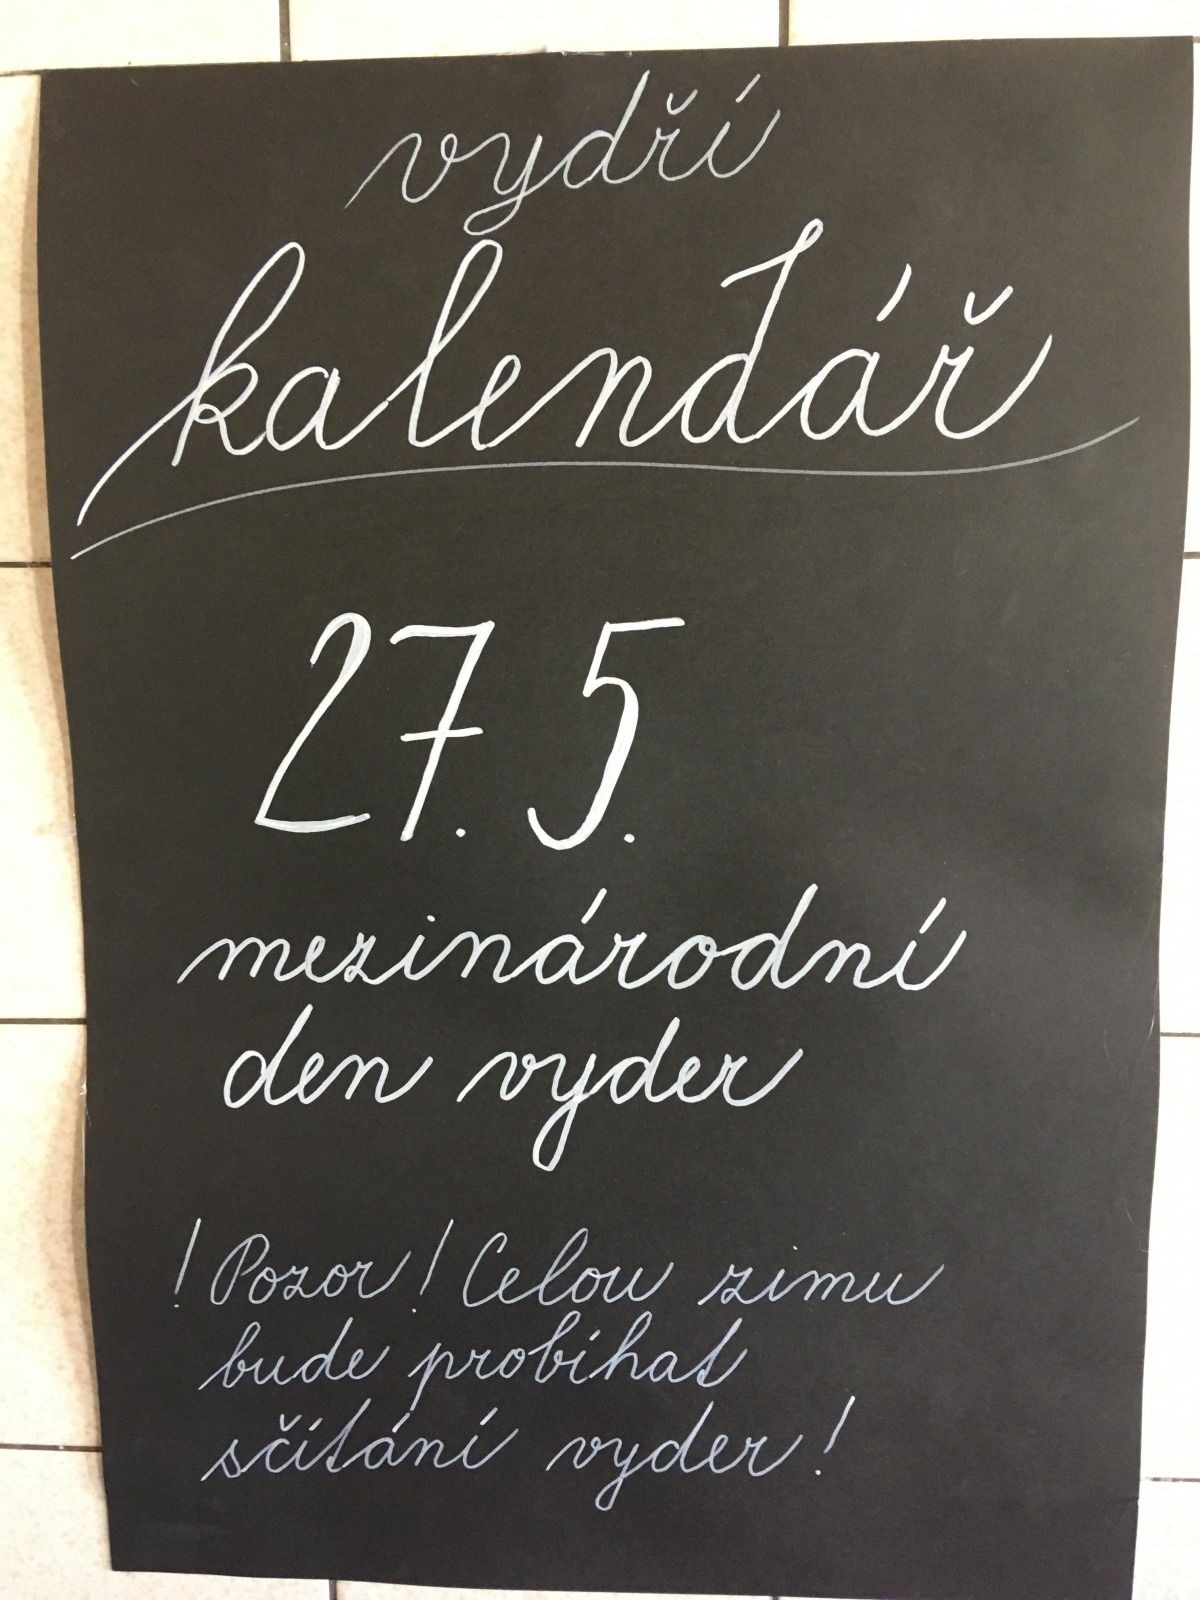 vydří
kalendář
27. 5.
mezinárodní
den vyder
! Pozor! Celou zimu
bude probíhat
sčítání vyder!